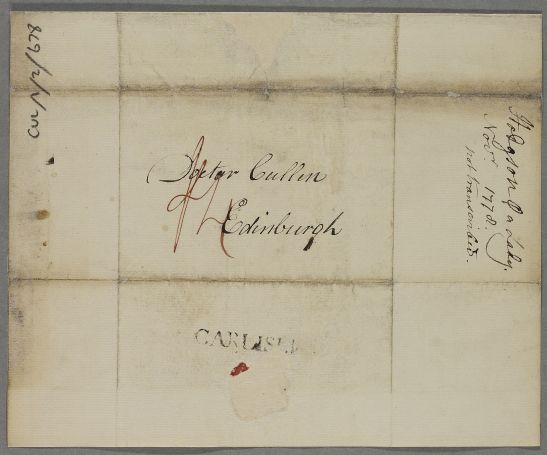 Doctor Cullen
Edinburgh
CARLISLE
Hodgson a Lady.
Novr. 1778.
not transcribed.
CUL/1/2/678